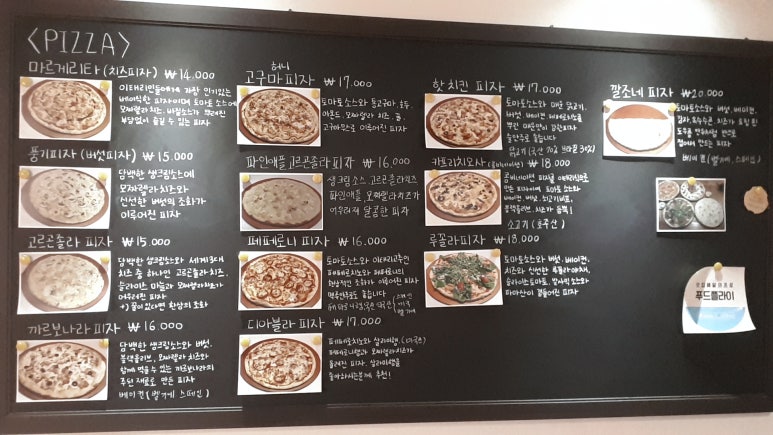 <PIZZA>
마르게리타 (치즈피자) ₩14.000
이태리인들에게 가장 인기있는
베이직한 피자이며 토마토 소스에
모짜렐라 치즈, 바질소스가 뿌려진
부담없이 즐길 수 있는 피자
풍기피자 (버섯피자) ₩15.000
담백한 생크림소스에
모짜렐라 치즈와
신선한 버섯의 조화가
이루어진 피자
고르곤졸라 피자 ₩15.000
담백한 생크림소스와 세계3대
치즈 중 하나인 고르곤졸라 치즈.
슬라이스 마늘과 모짜렐라치즈가
어우러진 피자
+) 꿀이 있다면 환상의 조화
까르보나라 피자 ₩16.000
담백한 생크림소스와 버섯.
블랙올리브, 모짜렐라 치즈와
함께 먹을 수 있는 까르보나라의
주된 재료로 만든 피자
베이컨 (벨기에 스페인)
허니
고구마 피자 ₩17.000
토마토소스와 통고구마, 호두.
아몬드, 모짜렐라 치즈, 꿀.
고구마무스로 이루어진 피자
파인애플 고르곤졸라 피자 ₩16.000
생크림소스 고르곤졸라치즈
파인애플, 모짜렐라치즈가
어우러져 달콤한 피자
페페로니 피자 ₩16.000
토마토소스와 이태리고추인
페페로치노와 페페로니의
환상적인 조화가 이루어진 피자
맥주안주로 좋습니다
디아블라 피자 ₩17.000
페페로치노와 살라미햄, (미국산)
페페로니햄과 모짜렐라치즈가
올려진 피자. 살라미햄을
좋아하시는분께 추천!
핫치킨 피자 ₩17.000
토마토소스와 매운 닭고기.
버섯, 베이컨 페페로치노를
뿌린 매운맛이 강한피자
술안주로 좋습니다
카프리치오사 ₩18.000
콤비네이션 피자를 이태리식으로
만든 피자이며 토마토 소스와
베이컨, 버섯, 쇠고기
블랙올리브, 치즈가 듬뿍!
소고기 (호주산)
루꼴라피자 ₩18.000
토마토소스와 버섯, 베이컨.
치즈와 신선한 루꼴라야채.
슬라이스토마토, 발사믹 소스와
파마산이 곁들어진 피자
깔조네 피자 ₩20.000
토마토소스와 버섯, 베이컨.
감자, 옥수수콘, 치즈가 토핑 된
도우를 만두처럼 반으로
접어서 만드는 피자
베이컨 (벨기에, 스페인)
푸드플라이